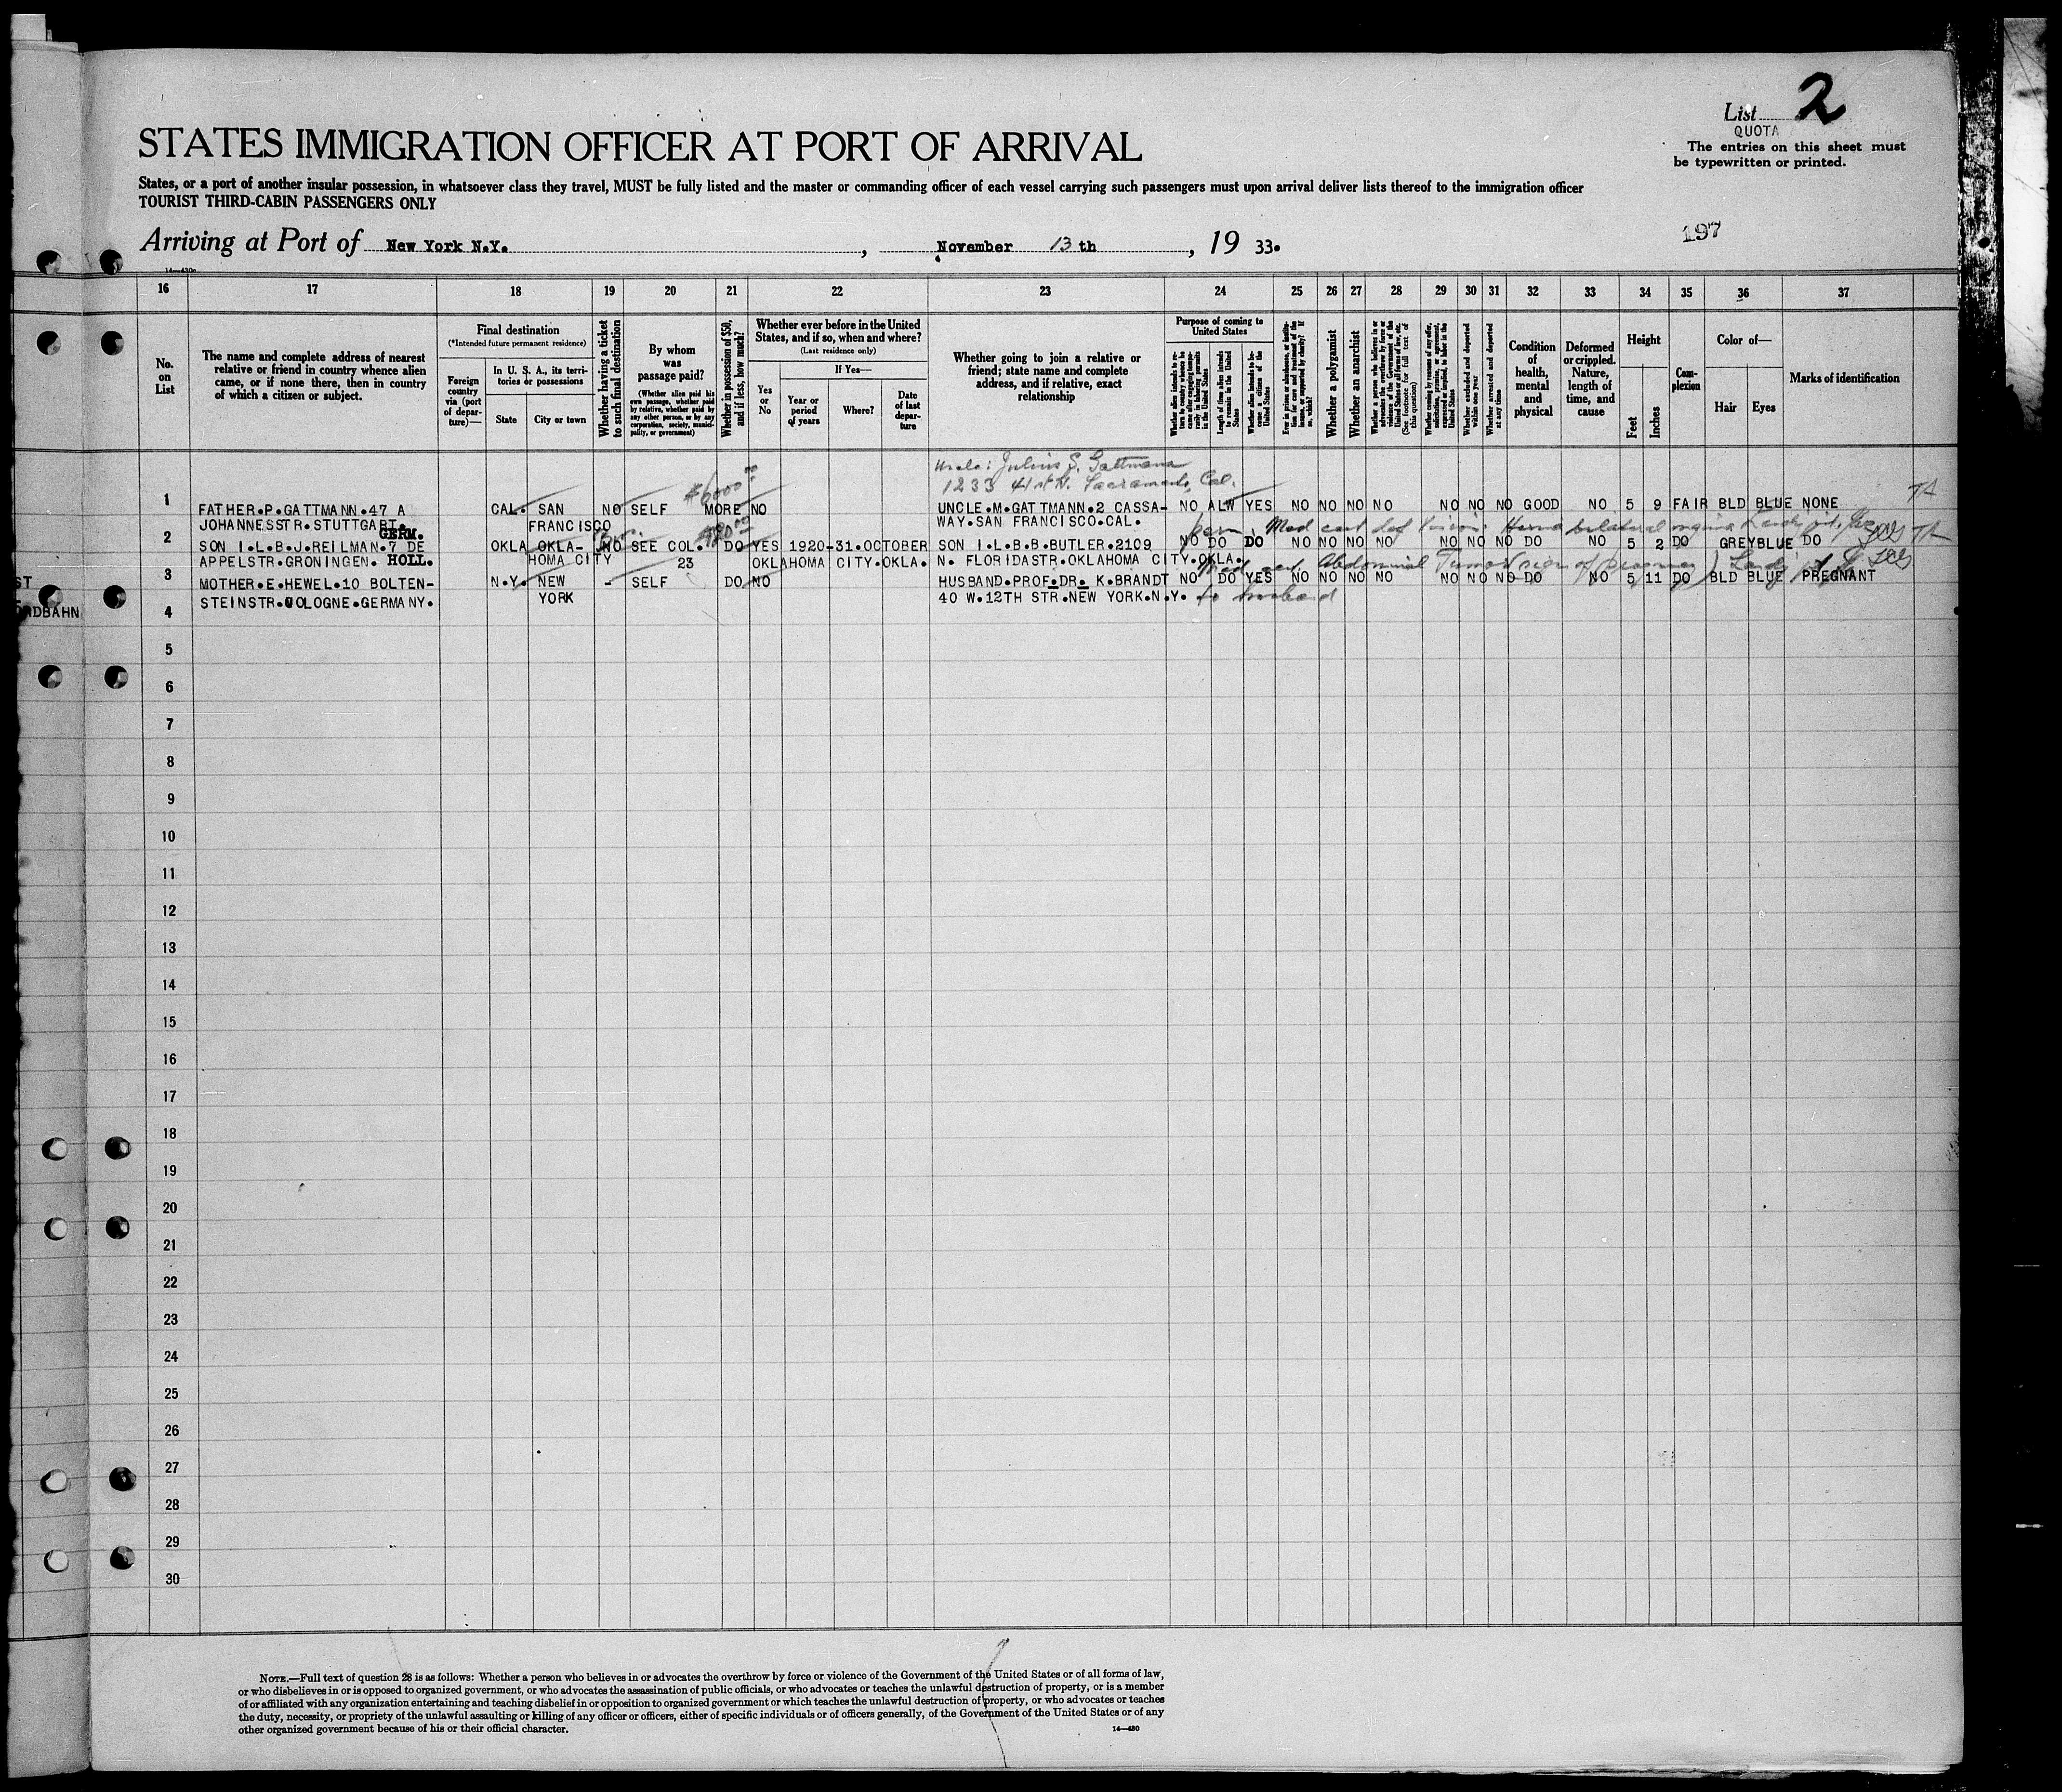 List 2
QUOTA
The entries on this sheet must
be typewritten or printed.
STATES IMMIGRATION OFFICER AT PORT OF ARRIVAL
States, or a port of another insular possession, in whatsoever class they travel, MUST be fully listed and the master or commanding officer of each vessel carrying such passengers must upon arrival deliver lists thereof to the immigration officer
TOURIST THIRD-CABIN PASSENGERS ONLY
197
Arriving at Port of New York N.Y. , November 13 th , 19 33.
16 17 18 19 20 21 22 23 24 25 26 27 28 29 30 31 32 33 34 35 36 37
No. on List
The name and complete address of nearest relative or friend in country whence alien came, or if none there, then in country of which a citizen or subject.
Final destination
(*Intended future permanent residence)
Foreign country via (port of departure)—
In U. S. A., its territories or possessions
State
City or town
Whether having a ticket to such final destination
By whom was passage paid?
(Whether alien paid his own passage, whether paid by relative, whether paid by any other person, or by any corporation, society, municipality, or government)
Whether in possession of $50, and if less, how much?
Whether ever before in the United States, and if so, when and where?
(Last residence only)
Yes or No
If Yes—
Year or period of years
Where?
Date of last departure
Whether going to join a relative or friend; state name and complete address, and if relative, exact relationship
Purpose of coming to United States
Whether a polygamist
Whether an anarchist
Whether excluded and deported within one year
Whether arrested and deported at any time
Condition of health, mental and physical
Deformed or crippled. Nature, length of time, and cause
Height
Feet
Inches
Complexion
Color of—
Hair
Eyes
Marks of identification
Uncle: Julius S. Gattmann
1233 41st St. Sacramento, Cal.
1 FATHER.P.GATTMANN.47 A CAL. SAN NO SELF MORE NO UNCLE.M.GATTMANN.2 CASSA- NO ALW YES NO NO NO NO NO NO NO GOOD NO 5 9 FAIR BLD BLUE NONE
JOHANNESSTR.STUTTGART. FRANCISCO WAY.SAN FRANCISCO.CAL.
GERM.
2 SON I.L.B.J.REILMAN.7 DE OKLA OKLA- NO SEE COL. DO YES 1920-31.OCTOBER SON I.L.B.B.BUTLER.2109 NO DO DO NO NO NO NO NO NO NO DO NO 5 2 DO GREY BLUE DO
APPELSTR.GRONINGEN. HOLL. HOMA CITY 23 OKLAHOMA CITY.OKLA. N. FLORIDASTR.OKLAHOMA CITY.OKLA.
3 MOTHER.E.HEWEL.10 BOLTEN- N.Y. NEW - SELF DO NO HUSBAND.PROF.DR. K.BRANDT NO DO YES NO NO NO NO NO NO NO DO NO 5 11 DO BLD BLUE PREGNANT
STEINSTR.COLOGNE.GERMANY. YORK 40 W.12TH STR.NEW YORK.N.Y. to husband
4
5
6
7
8
9
10
11
12
13
14
15
16
17
18
19
20
21
22
23
24
25
26
27
28
29
30
NOTE.—Full text of question 28 is as follows: Whether a person who believes in or advocates the overthrow by force or violence of the Government of the United States or of all forms of law,
or who disbelieves in or is opposed to organized government, or who advocates the assassination of public officials, or who advocates or teaches the unlawful destruction of property, or is a member
of or affiliated with any organization entertaining and teaching disbelief in or opposition to organized government or which teaches the unlawful destruction of property, or who advocates or teaches
the duty, necessity, or propriety of the unlawful assaulting or killing of any officer or officers, either of specific individuals or of officers generally, of the Government of the United States or of any
other organized government because of his or their official character.
14—430